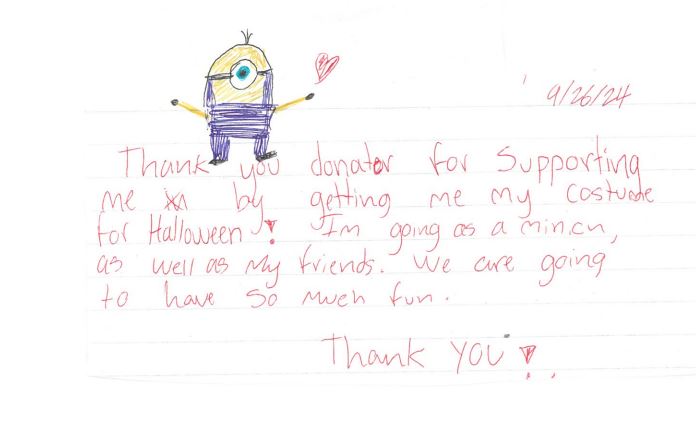 9/26/24
Thank you donator for Supporting
me by getting me my costume
for Halloween! I'm going as a minion,
as well as my friends. We are going
to have so much fun.
Thank you!